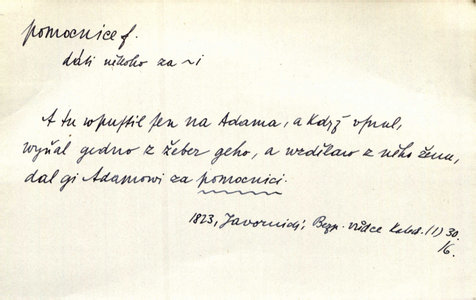 pomocnice f.
dáti někoho za ~i
A tu wpustil sen na Adama, a když vsnul,
wyňal gedno z žeber geho, a wzdělaw z něho ženu,
dal gi Adamowi za pomocnici.
1823, Javornický, Bezp. vůdce Kated. (1) 30.
16.